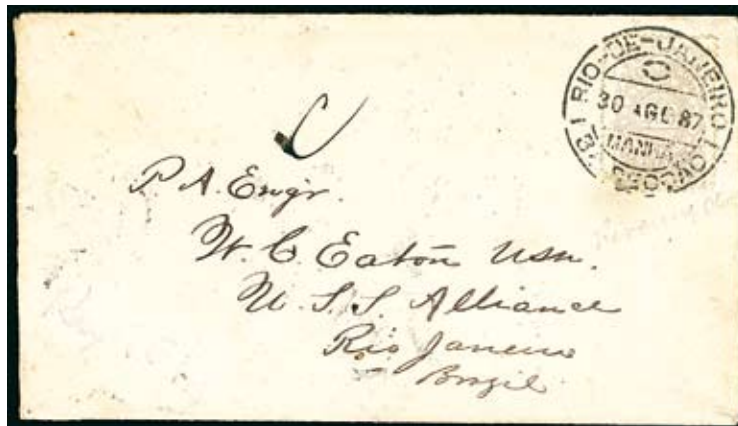 RIO-DE-JANEIRO
30 AGO 87
MANHÃ
P. A. Engr.
W. C. Eaton USN.
U. S. S. Alliance
Rio Janeiro
Brazil